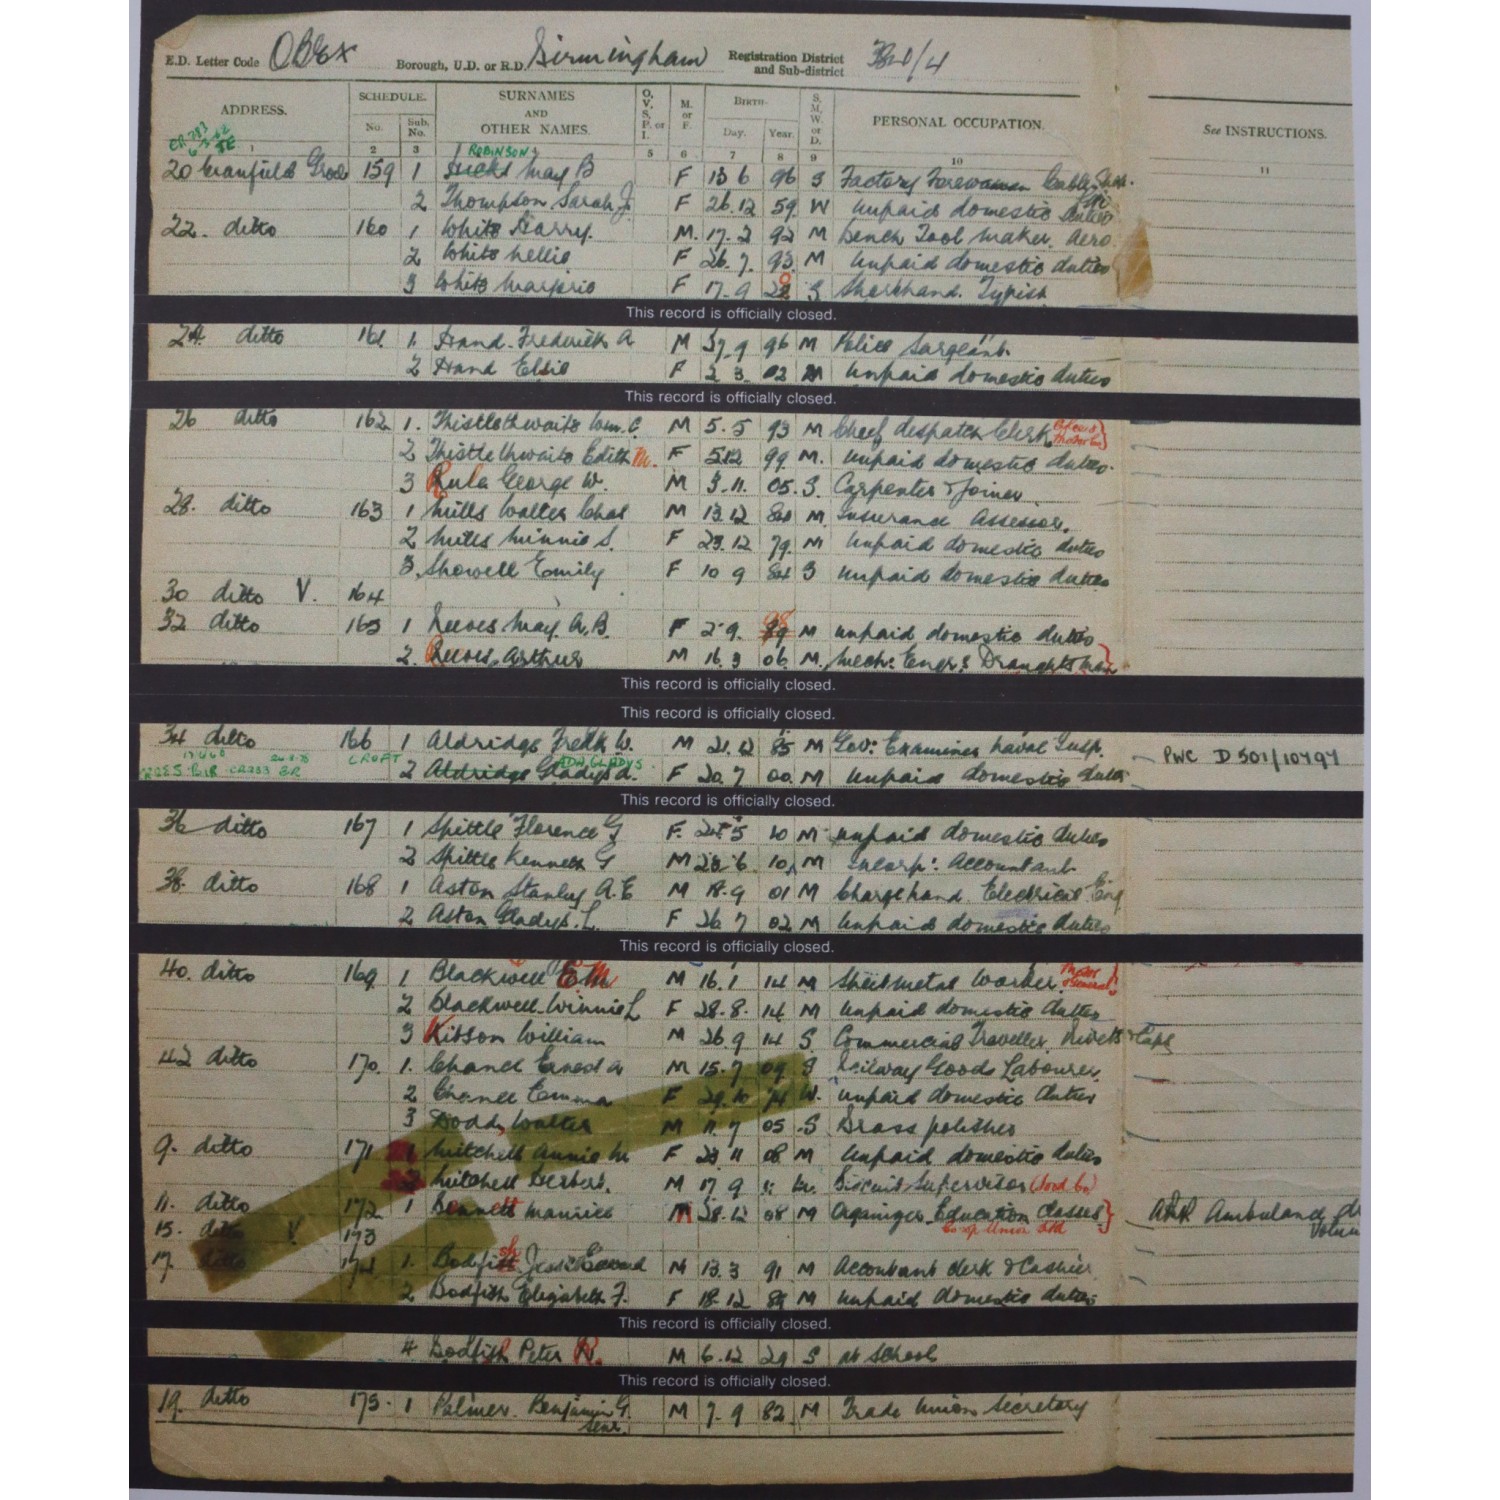 E.D. Letter Code OBEX Borough, U.D. or R.D. Birmingham Registration District and Sub-district /4
ADDRESS. SCHEDULE. No. Sub. No. SURNAMES AND OTHER NAMES. O, V, S, P, or I. M. or F. BIRTH- Day. Year. S, M, W, or D. PERSONAL OCCUPATION. See INSTRUCTIONS.
1 2 3 4 5 6 7 8 9 10 11
ROBINSON
20 159 1 May B F 13 6 96 S Factory Forewoman Cable
2 Thompson Sarah J F 26.12 59 W unpaid domestic duties
22. ditto 160 1 White Harry. M. 17.2 92 M bench Tool Maker. Aero
2 White Nellie F 26.7. 93. M unpaid domestic duties
3 White Marjorie F 17.9 S Shorthand. Typist
This record is officially closed.
24 ditto 161 1. Hand. Frederick A M 9 96 M Police Sargeant.
2 Hand Elsie F 2 3. 02 M unpaid domestic duties
This record is officially closed.
26 ditto 162 1. Thistlethwaite Wm. C. M 5.5 93 M Chief despatch Clerk
2 Thistlethwaite Edith M. F 5.12 99. M. unpaid domestic duties.
3 Rula George W. M 3.11. 05. S. Carpenter & Joiner
28. ditto 163 1 Mills Walter Chas M 13.12 80 M. Insurance Assessor.
2 Mills Minnie S. F 23.12 79. M unpaid domestic duties
3. Showell Emily F 10 9 84 S unpaid domestic duties
30 ditto V. 164
32 ditto 165 1 Reeves May. A.B. F 2.9. 89 M unpaid domestic duties
2. Reeves, Arthur M 16.3 06. M. Mech: Engr: Draughtsman
This record is officially closed.
This record is officially closed.
34 ditto 166 1 Aldridge Fredk W. M 21.12 85 M Gov: Examiner Naval Insp. PWC D 501/10797
CROFT ADA, GLADYS.
2 Aldridge Gladys A. F 20.7 00. M unpaid domestic duties
This record is officially closed.
36 ditto 167 1 Spittle Florence G F. 5 10 M unpaid domestic duties
2 Spittle Kenneth G M 28.6 10 M Incorp: Accountant
38. ditto 168 1 Aston Stanley A.E M 18.9 01 M Chargehand Electrical Eng
2 Aston Gladys. L. F 26.7 02 M unpaid domestic duties
This record is officially closed.
40. ditto 169 1 Blackwell E.M M 16.1 14 M Sheetmetal Worker. Motor & General
2 Blackwell Winnie L F 28.8. 14 M unpaid domestic duties
3 Kibson William M 26.9 14 S. Commercial Traveller. Rivets & Caps
42 ditto 170. 1. Chance Ernest A M 15.7 09 S Railway Goods Labourer.
2 Chance Emma F 29.10 74 W. unpaid domestic duties
3 Dodd, Walter M 11.7 05 S Brass polisher
9. ditto 171 1 Mitchell Annie M F 23 11 08 M unpaid domestic duties
2 Mitchell Herbert. M 17 9 Biscuit Supervisor (Food Co)
11. ditto 172 1 Bennett Maurice M 28.12 08 M Organiser Education Classes ARP Ambulance
Co-op Union Ltd
15. ditto V 173
17. ditto 174 1. Bodfish M 13.3 91 M Accountant Clerk & Cashier
2 Bodfish Elizabeth F. F 18.12 89 M unpaid domestic duties
This record is officially closed.
4 Bodfish Peter R. M 6.12 29 S at School
This record is officially closed.
19. ditto 175. 1 Palmer. Benjamin G. Senr. M 7.9 82 M Trade Union Secretary